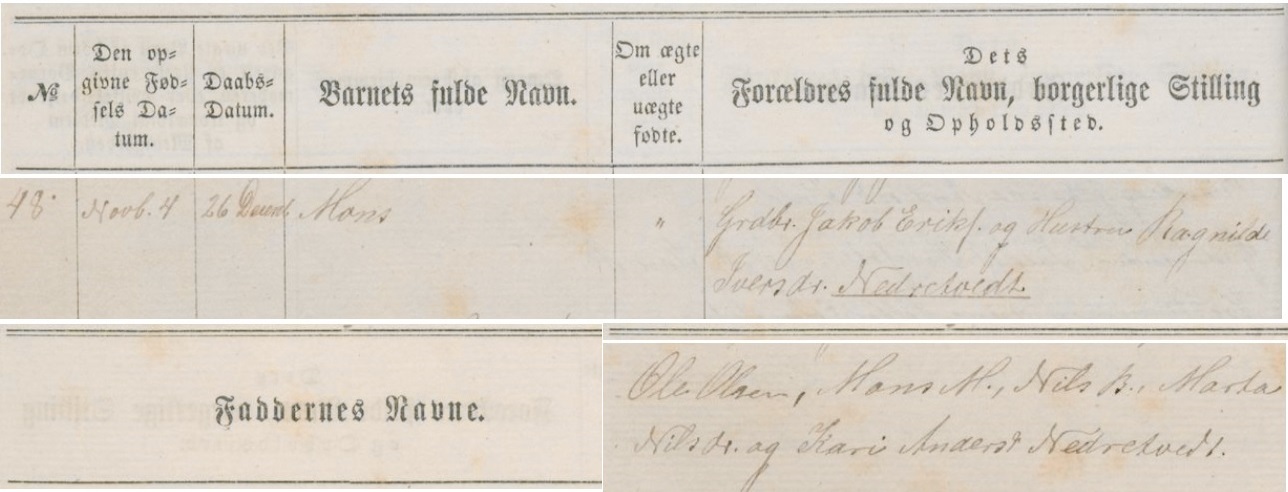 №
Den op=
givne Fød=
sels Da=
tum.
Daabs=
Datum.
Barnets fulde Navn.
Om ægte
eller
uægte
fødte.
Dets
Forældres fulde Navn, borgerlige Stilling
og Opholdssted.
48. Novb. 4 26 Decemb. Mons " Grdbr. Jakob Eriks. og Hustru Ragnilde
Iversdr. Nedretvedt.
Faddernes Navne.
Ole Olsen, Mons M., Nils B., Marta
Nilsdr. og Kari Andersd. Nedretvedt.